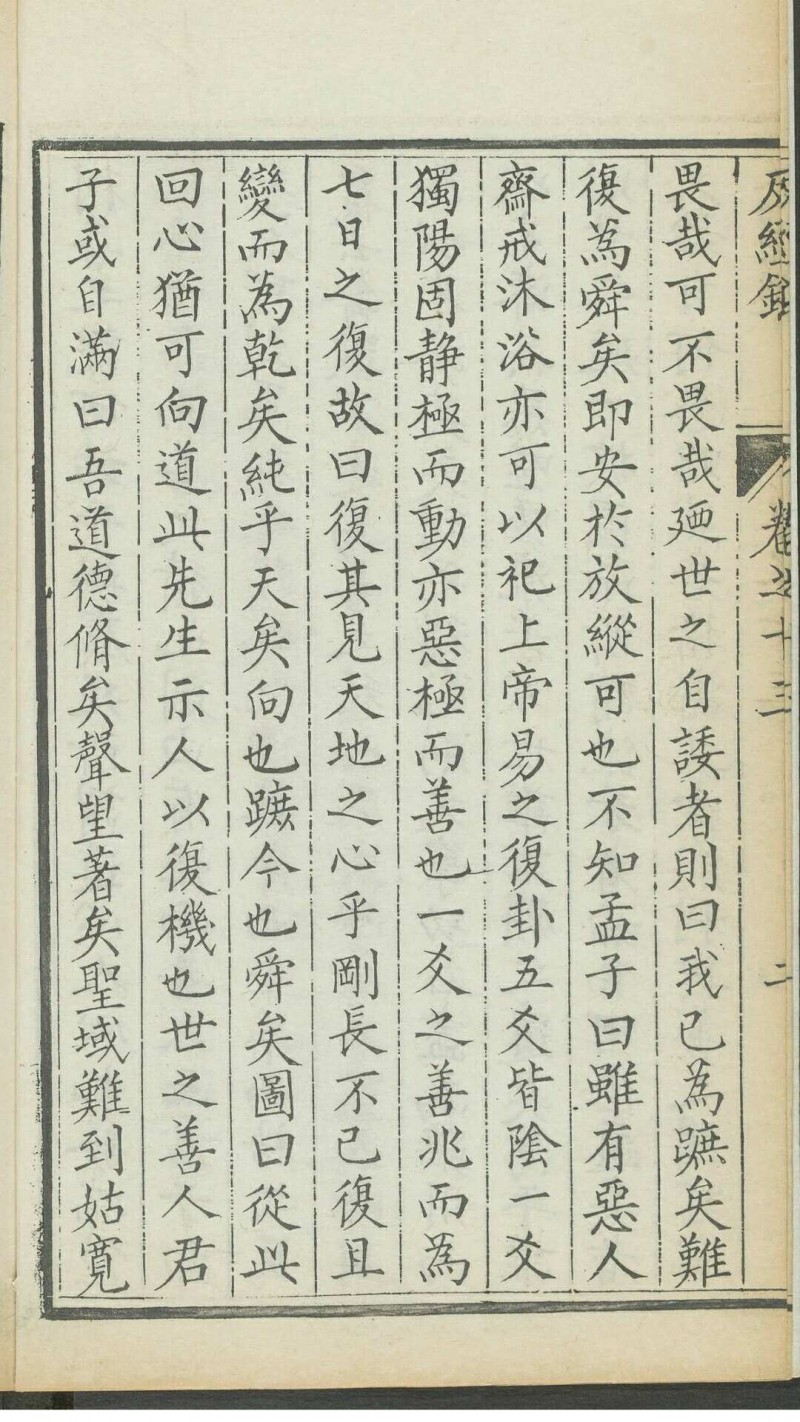 畏哉可不畏哉廼世之自諉者則曰我已為蹠矣難
復為舜矣即安於放縱可也不知孟子曰雖有惡人
齋戒沐浴亦可以祀上帝易之復卦五爻皆陰一爻
獨陽固静極而動亦惡極而善也一爻之善兆而為
七日之復故曰復其見天地之心乎剛長不已復且
變而為乾矣純乎天矣向也蹠今也舜矣圖曰從此
回心猶可向道此先生示人以復機也世之善人君
子或自滿曰吾道德脩矣聲望著矣聖域難到姑寛
卷之十三
二